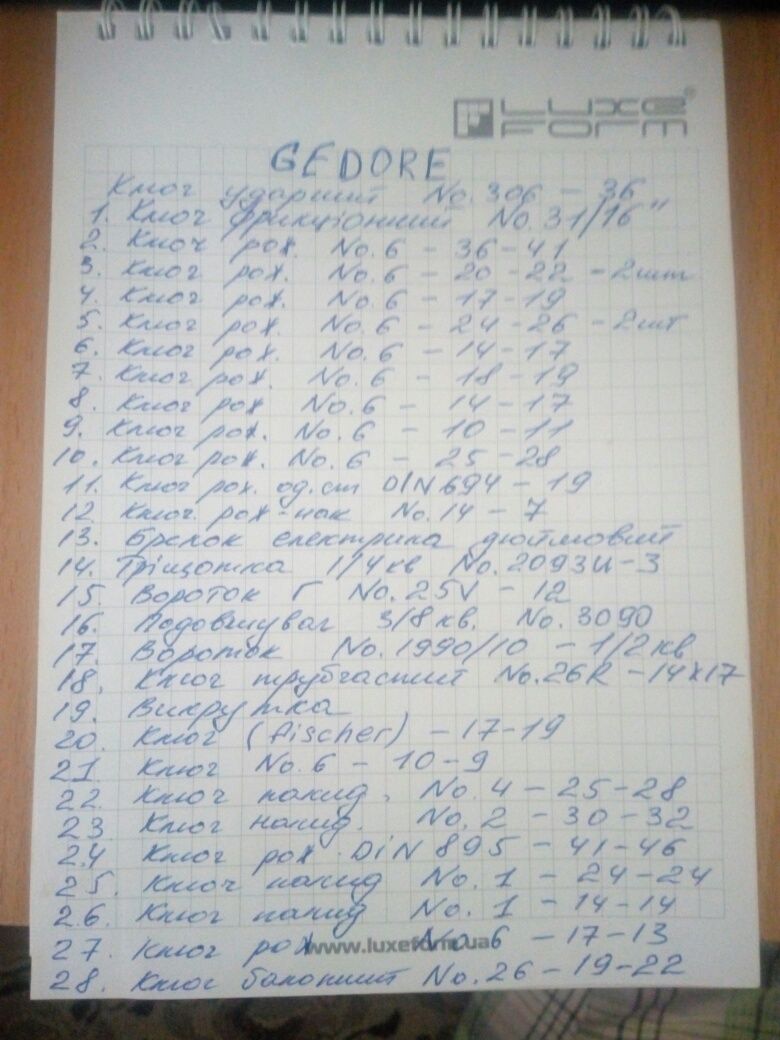 LUXE
FORM
GEDORE
Ключ ударний No.306 - 36
1. Ключ фрикціонний No.31/16"
2. Ключ рож. No.6 - 36-41
3. Ключ рож. No.6 - 20-22 - 2шт
4. Ключ рож. No.6 - 17-19
5. Ключ рож. No.6 - 24-26 - 2шт
6. Ключ рож. No.6 - 14-17
7. Ключ рож. No.6 - 18-19
8. Ключ рож No.6 - 14-17
9. Ключ рож. No.6 - 10-11
10. Ключ рож. No.6 - 25-28
11. Ключ рож. од.ст DIN 694 - 19
12 Ключ. рож-нак No.14 - 7
13. Брелок електрика дюймовий
14. Тріщотка 1/4кв No.2093U-3
15. Вороток Г No.25V - 12
16. Подовжувач 3/8кв. No.3090
17. Вороток No.1990/10 - 1/2кв
18. Ключ трубчастий No.26R - 14x17
19. Викрутка
20. Ключ (fischer) - 17-19
21. Ключ No.6 - 10-9
22. Ключ накид. No.4 - 25-28
23. Ключ накид. No.2 - 30-32
24. Ключ рож. DIN 895 - 41-46
25. Ключ накид No.1 - 24-24
26. Ключ накид No.1 - 14-14
27. Ключ рож No.6 - 17-13
www.luxeform.ua
28. Ключ балонний No.26 - 19-22